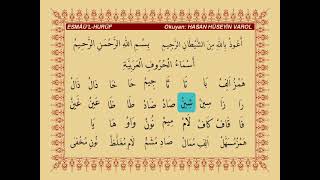 ESMAÜ'L-HURÛF Okuyan: HASAN HÜSEYİN VAROL
اَعُوذُ بِاللّٰهِ مِنَ الشَّيْطَانِ الرَّجِيمِ بِسْمِ اللّٰهِ الرَّحْمٰنِ الرَّحِيمِ
اَسْمَاءُ الْحُرُوفِ الْعَرَبِيَّةِ
هَمْزْ اَلِفْ بَا تَا ثَا جِيمْ حَا خَا دَالْ ذَالْ
رَا زَا سِينْ شِينْ صَادْ ضَادْ طَا ظَا عَيْنْ غَيْنْ
فَا قَافْ كَافْ لَامْ مِيمْ نُونْ وَاوْ هَا يَا
هَمْزْ مُسَهَّلْ اَلِفْ مُمَالْ صَادْ مُشَمْ لَامْ مُغَلَّظْ نُونْ مُخْفَى